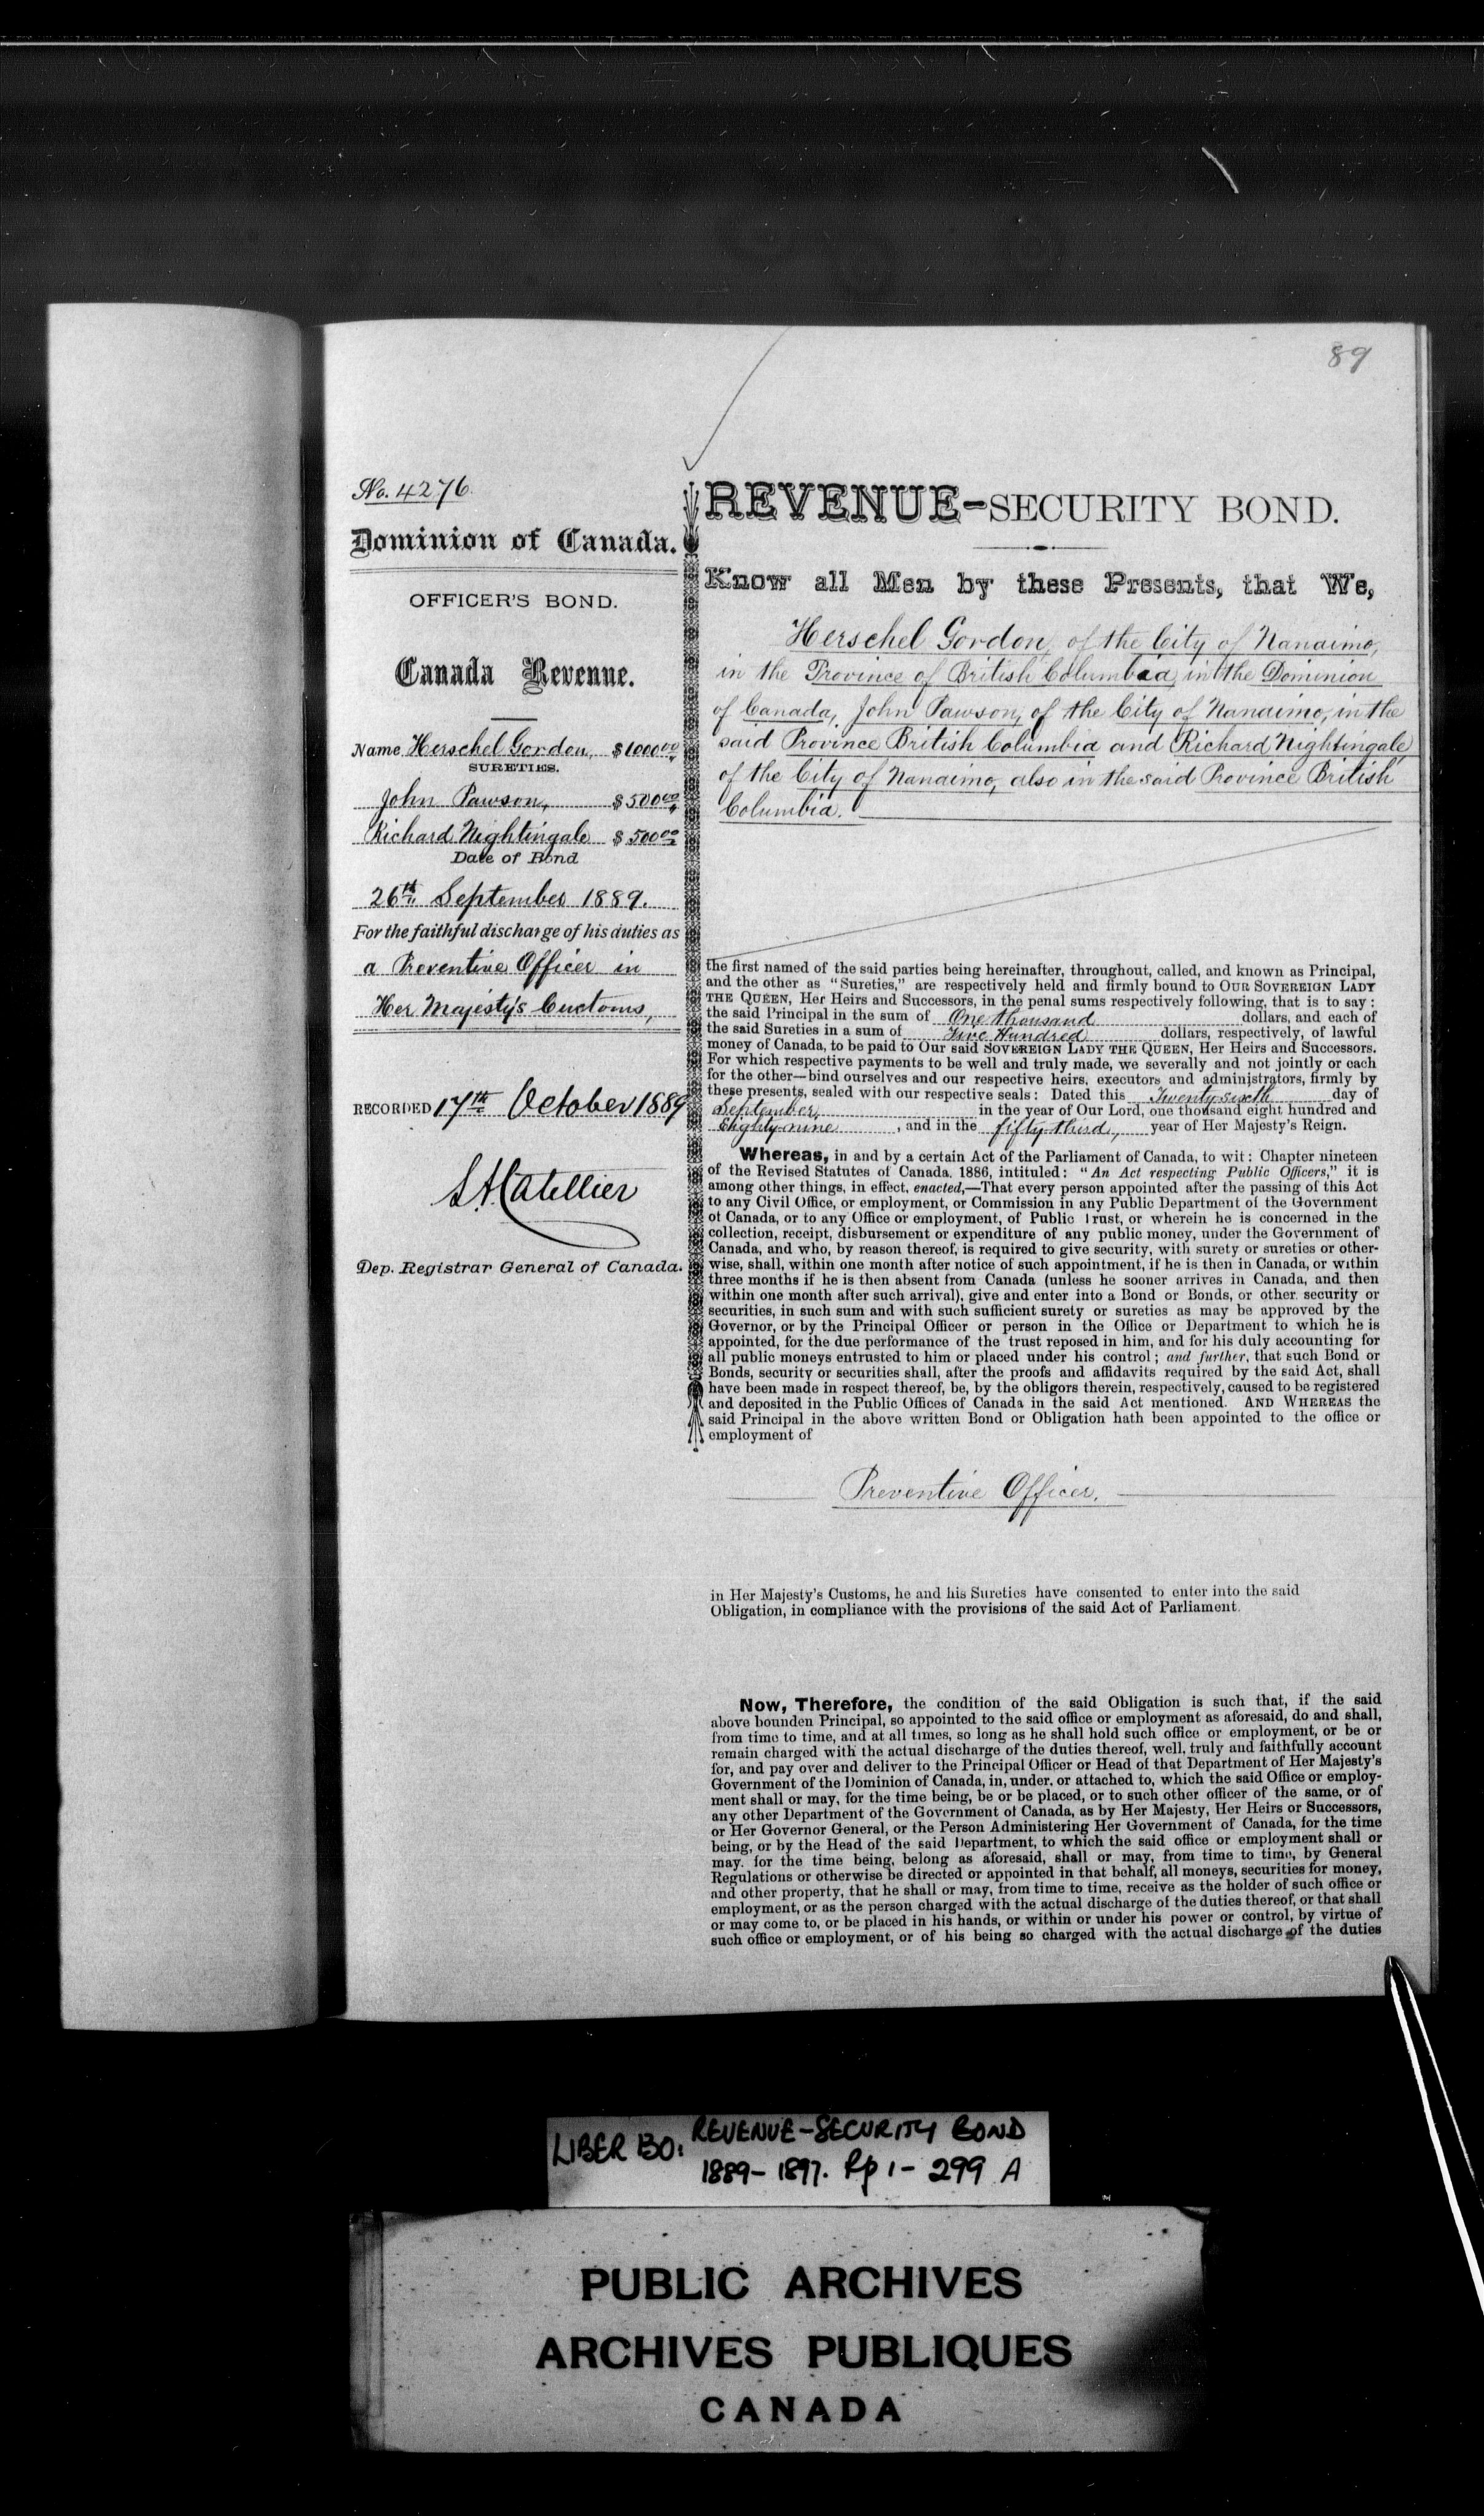 89
No. 4276.
Dominion of Canada.
OFFICER'S BOND.
Canada Revenue.
Name Herschel Gordon, $1000.00
SURETIES.
John Pawson, $500.00
Richard Nightingale $500.00
Date of Bond
26th September 1889.
For the faithful discharge of his duties as
a Preventive Officer in
Her Majesty's Customs,
RECORDED 17th October 1889
L.A. Catellier
Dep. Registrar General of Canada.
REVENUE-SECURITY BOND.
Know all Men by these Presents, that We,
Herschel Gordon, of the City of Nanaimo,
in the Province of British Columbia, in the Dominion
of Canada, John Pawson, of the City of Nanaimo, in the
said Province British Columbia and Richard Nightingale
of the City of Nanaimo, also in the said Province British
Columbia.
the first named of the said parties being hereinafter, throughout, called, and known as Principal,
and the other as "Sureties," are respectively held and firmly bound to OUR SOVEREIGN LADY
THE QUEEN, Her Heirs and Successors, in the penal sums respectively following, that is to say :
the said Principal in the sum of One thousand dollars, and each of
the said Sureties in a sum of Five Hundred dollars, respectively, of lawful
money of Canada, to be paid to Our said SOVEREIGN LADY THE QUEEN, Her Heirs and Successors.
For which respective payments to be well and truly made, we severally and not jointly or each
for the other—bind ourselves and our respective heirs, executors and administrators, firmly by
these presents, sealed with our respective seals : Dated this Twenty sixth day of
September in the year of Our Lord, one thousand eight hundred and
Eighty-nine , and in the fifty-third, year of Her Majesty's Reign.
Whereas, in and by a certain Act of the Parliament of Canada, to wit : Chapter nineteen
of the Revised Statutes of Canada, 1886, intituled : "An Act respecting Public Officers," it is
among other things, in effect, enacted,—That every person appointed after the passing of this Act
to any Civil Office, or employment, or Commission in any Public Department of the Government
of Canada, or to any Office or employment, of Public Trust, or wherein he is concerned in the
collection, receipt, disbursement or expenditure of any public money, under the Government of
Canada, and who, by reason thereof, is required to give security, with surety or sureties or other-
wise, shall, within one month after notice of such appointment, if he is then in Canada, or within
three months if he is then absent from Canada (unless he sooner arrives in Canada, and then
within one month after such arrival), give and enter into a Bond or Bonds, or other security or
securities, in such sum and with such sufficient surety or sureties as may be approved by the
Governor, or by the Principal Officer or person in the Office or Department to which he is
appointed, for the due performance of the trust reposed in him, and for his duly accounting for
all public moneys entrusted to him or placed under his control ; and further, that such Bond or
Bonds, security or securities shall, after the proofs and affidavits required by the said Act, shall
have been made in respect thereof, be, by the obligors therein, respectively, caused to be registered
and deposited in the Public Offices of Canada in the said Act mentioned. AND WHEREAS the
said Principal in the above written Bond or Obligation hath been appointed to the office or
employment of
Preventive Officer.
in Her Majesty's Customs, he and his Sureties have consented to enter into the said
Obligation, in compliance with the provisions of the said Act of Parliament.
Now, Therefore, the condition of the said Obligation is such that, if the said
above bounden Principal, so appointed to the said office or employment as aforesaid, do and shall,
from time to time, and at all times, so long as he shall hold such office or employment, or be or
remain charged with the actual discharge of the duties thereof, well, truly and faithfully account
for, and pay over and deliver to the Principal Officer or Head of that Department of Her Majesty's
Government of the Dominion of Canada, in, under, or attached to, which the said Office or employ-
ment shall or may, for the time being, be or be placed, or to such other officer of the same, or of
any other Department of the Government of Canada, as by Her Majesty, Her Heirs or Successors,
or Her Governor General, or the Person Administering Her Government of Canada, for the time
being, or by the Head of the said Department, to which the said office or employment shall or
may, for the time being, belong as aforesaid, shall or may, from time to time, by General
Regulations or otherwise be directed or appointed in that behalf, all moneys, securities for money,
and other property, that he shall or may, from time to time, receive as the holder of such office or
employment, or as the person charged with the actual discharge of the duties thereof, or that shall
or may come to, or be placed in his hands, or within or under his power or control, by virtue of
such office or employment, or of his being so charged with the actual discharge of the duties
LIBER BO: REVENUE-SECURITY BOND
1889-1897. Pp 1-299 A
PUBLIC ARCHIVES
ARCHIVES PUBLIQUES
CANADA